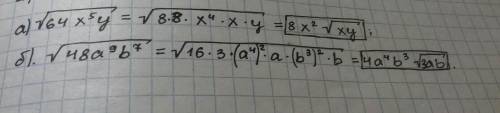 а) √64 x⁵y = √8·8· x⁴ · x · y = 8 x² √xy ;
б). √48a⁹b⁷ = √16 · 3 · (a⁴)² · a · (b³)² · b = 4a⁴b³ √3ab .